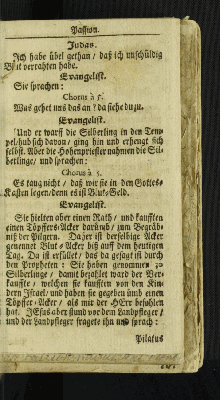 Passion.
Judas.
Ich habe übel gethan / daß ich unschüldig
Blut verrahten habe.
Evangelist.
Sie sprachen:
Chorus à 5.
Was gehet uns das an? da siehe du zu.
Evangelist.
Und er warff die Silberling in den Tem-
pel / hub sich davon / ging hin und erhengt sich
selbst. Aber die Hohenpriester nahmen die Sil-
berlinge / und sprachen:
Chorus à 5.
Es taug nicht / daß wir sie in den Gottes-
Kasten legen / denn es ist Blut-Geld.
Evangelist.
Sie hielten aber einen Rath / und kaufften
einen Töpffers-Acker darumb / zum Begräb-
niß der Pilgern. Daher ist derselbige Acker
genennet Blut-Acker biß auff den heutigen
Tag. Da ist erfüllet / das da gesagt ist durch
den Propheten: Sie haben genommen 30
Silberlinge / damit bezahlet ward der Ver-
kauffte / welchen sie kaufften von den Kin-
dern Israel / und haben sie gegeben ümb einen
Töpffer-Acker / als mir der HErr befohlen
hat. JEsus aber stund vor dem Landpfleger /
und der Landpfleger fragete ihn und sprach:
Pilatus